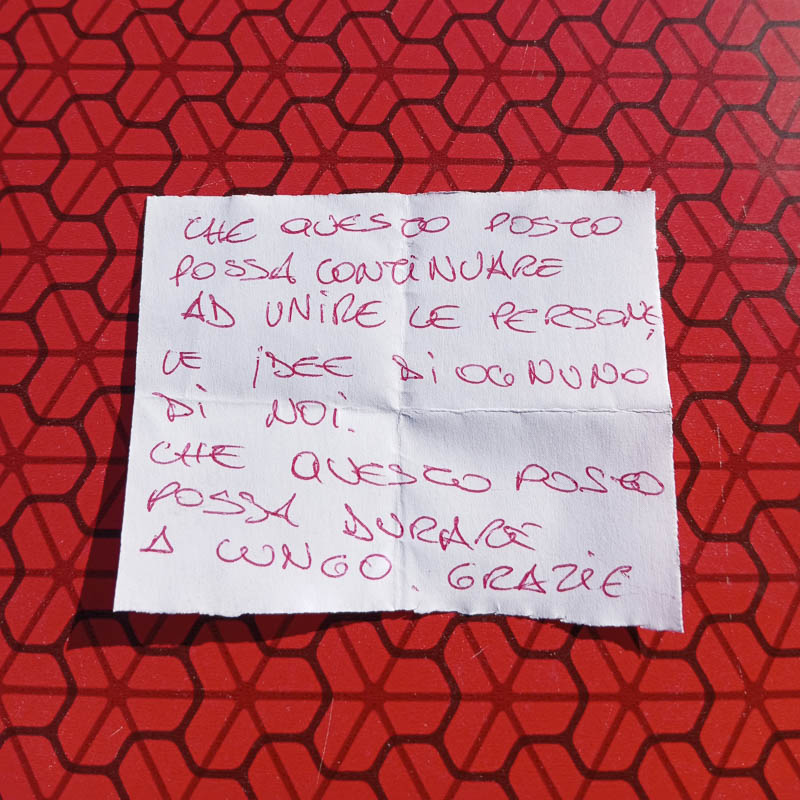 CHE QUESTO POSTO
POSSA CONTINUARE
AD UNIRE LE PERSONE,
LE IDEE DI OGNUNO
DI NOI.
CHE QUESTO POSTO
POSSA DURARE
A LUNGO. GRAZIE